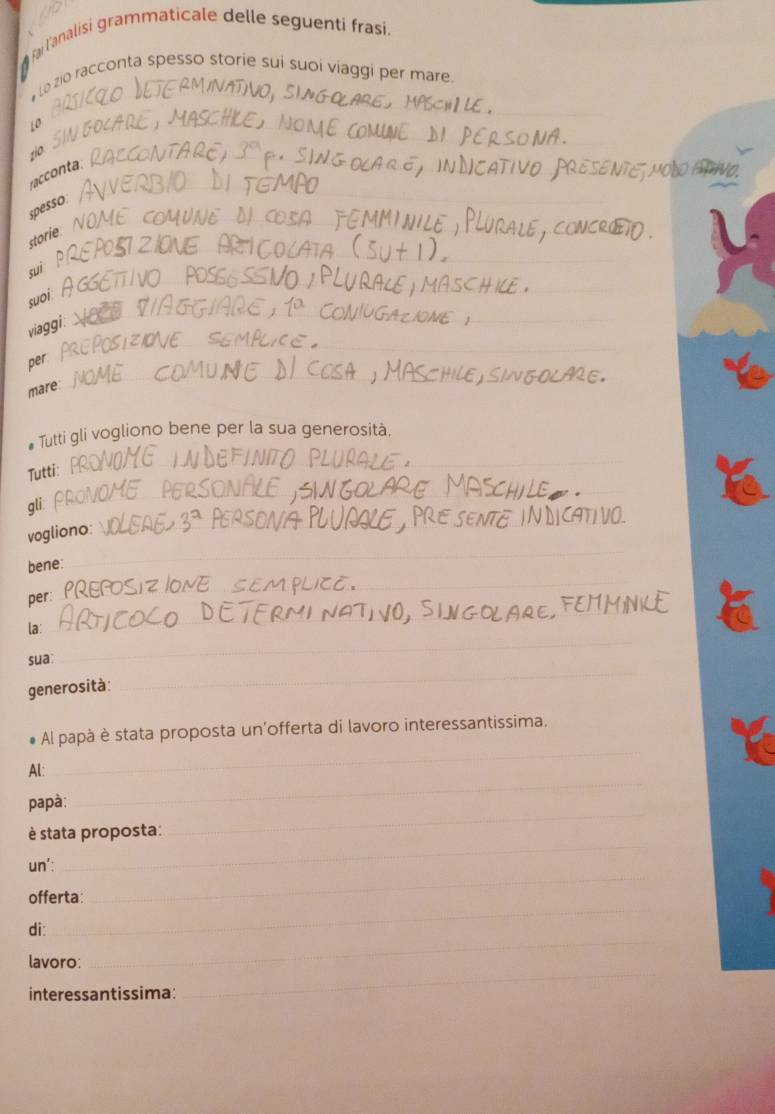 Fai l'analisi grammaticale delle seguenti frasi.
Lo zio racconta spesso storie sui suoi viaggi per mare.
Lo ARSICOLO DETERMINATIVO, SINGOLARE, MASCHILE.
zio SINGOLARE, MASCHILE, NOME COMUNE DI PERSONA.
racconta: RACCONTARE, 3ª p. SINGOLARE, INDICATIVO PRESENTE, MODO
spesso: AVVERBIO DI TEMPO
storie: NOME COMUNE DI COSA FEMMINILE, PLURALE, CONCRETO.
sui: PREPOSIZIONE ARTICOLATA (SU+I).
suoi: AGGETTIVO POSSESSIVO, PLURALE, MASCHILE.
viaggi: VIAGGIARE, 1ª CONIUGAZIONE,
per: PREPOSIZIONE SEMPLICE.
mare: NOME COMUNE DI COSA, MASCHILE, SINGOLARE.
• Tutti gli vogliono bene per la sua generosità.
Tutti: PRONOME INDEFINITO PLURALE.
gli: PRONOME PERSONALE, SINGOLARE MASCHILE.
vogliono: VOLERE, 3ª PERSONA PLURALE, PRESENTE INDICATIVO.
bene:
per: PREPOSIZIONE SEMPLICE.
la: ARTICOLO DETERMINATIVO, SINGOLARE, FEMMINILE
sua:
generosità:
• Al papà è stata proposta un'offerta di lavoro interessantissima.
Al:
papà:
è stata proposta:
un':
offerta:
di:
lavoro:
interessantissima: